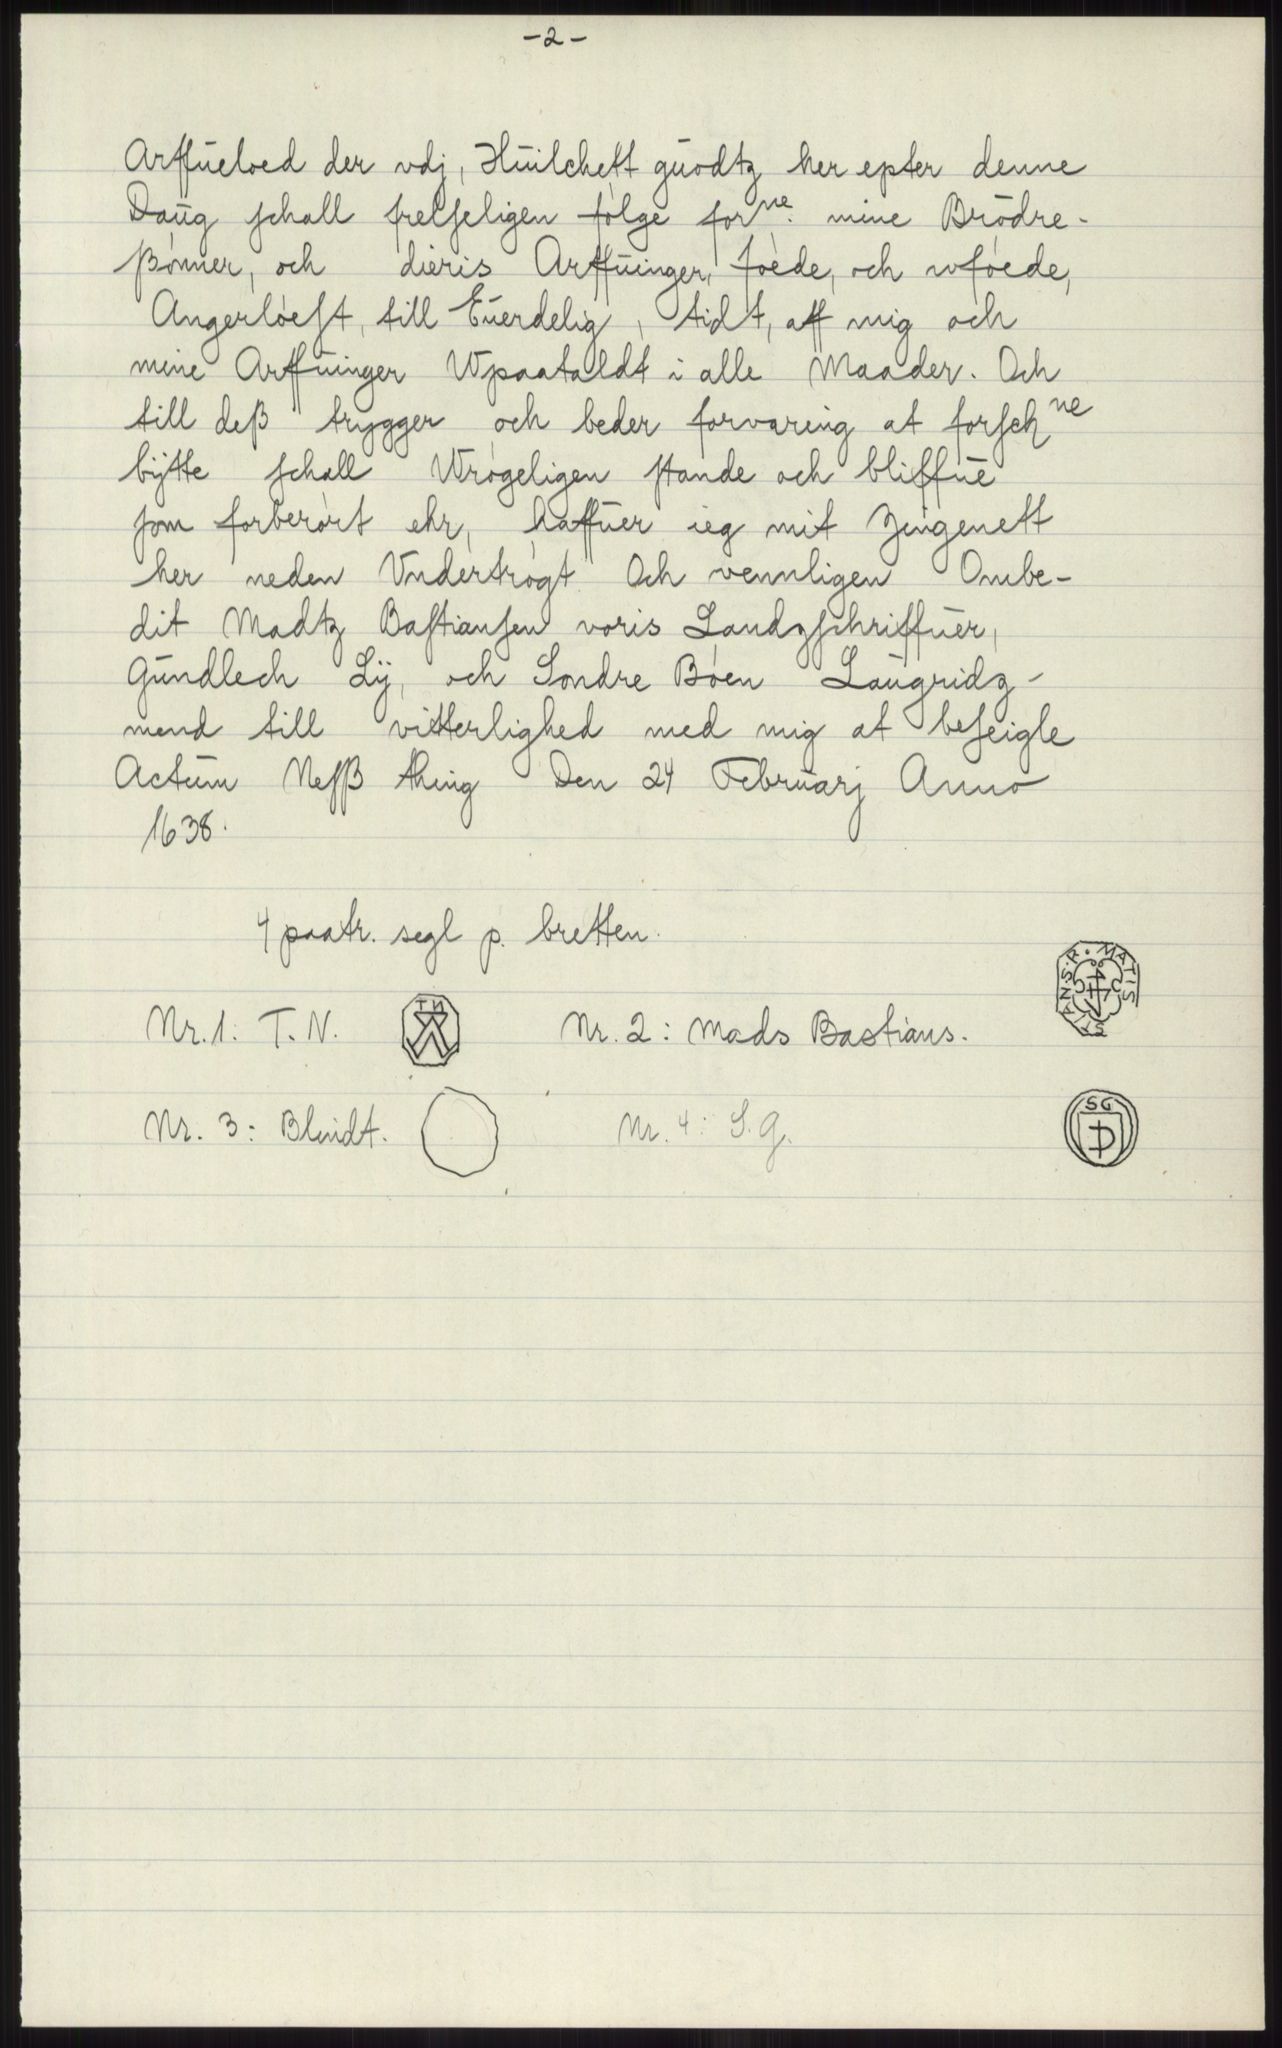 -2-
Arffueloed der vdj, Huilchett guodtz her epter denne
Daug schall frelseligen følge for ne. mine Brødre-
ßønner, och dieris Arffuinger, føede, och wføede,
Angerløest, till Euerdelig, tidt, aff mig och
mine Arffuinger Wpaataldt i alle Maader. Och
till deß trygger och beder forvaring at forsch ne
bÿtte schall Wrøgeligen stande och bliffue
som forberørt ehr, haffuer ieg mit Zingenett
her neden Vndertrøgt Och vennligen Ombe-
dit Madtz Bastiansen voris Landzschriffuer,
Gundlech Lÿ, och Sondre Bøen Laugridz-
mend till vitterlighed med mig at beseigle
Actum Nesß thing Den 24 Februarj Anno
1638.
4 paatr. segl p. bretten.
Nr. 1: T. N. TN Nr. 2: Mads Bastians. MATIS
Nr. 3: Blindt. Nr. 4: S. G. SG